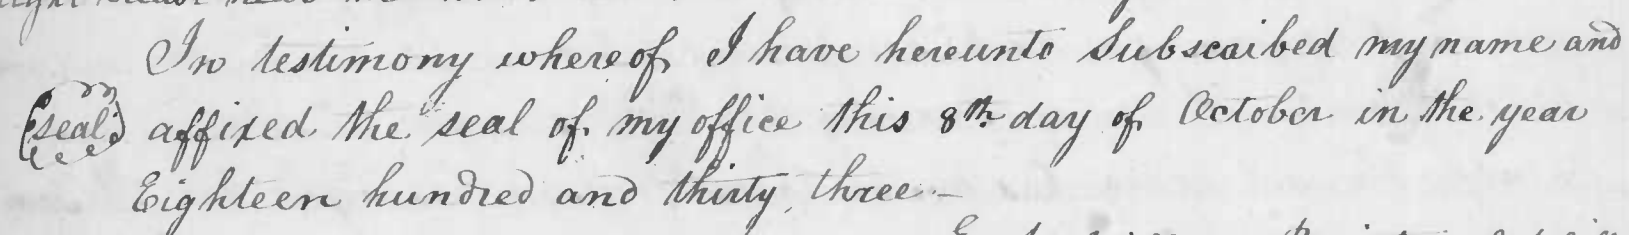 In testimony whereof I have hereunto Subscribed my name and
(seal) affixed the seal of my office this 8th day of October in the year
Eighteen hundred and thirty three. —